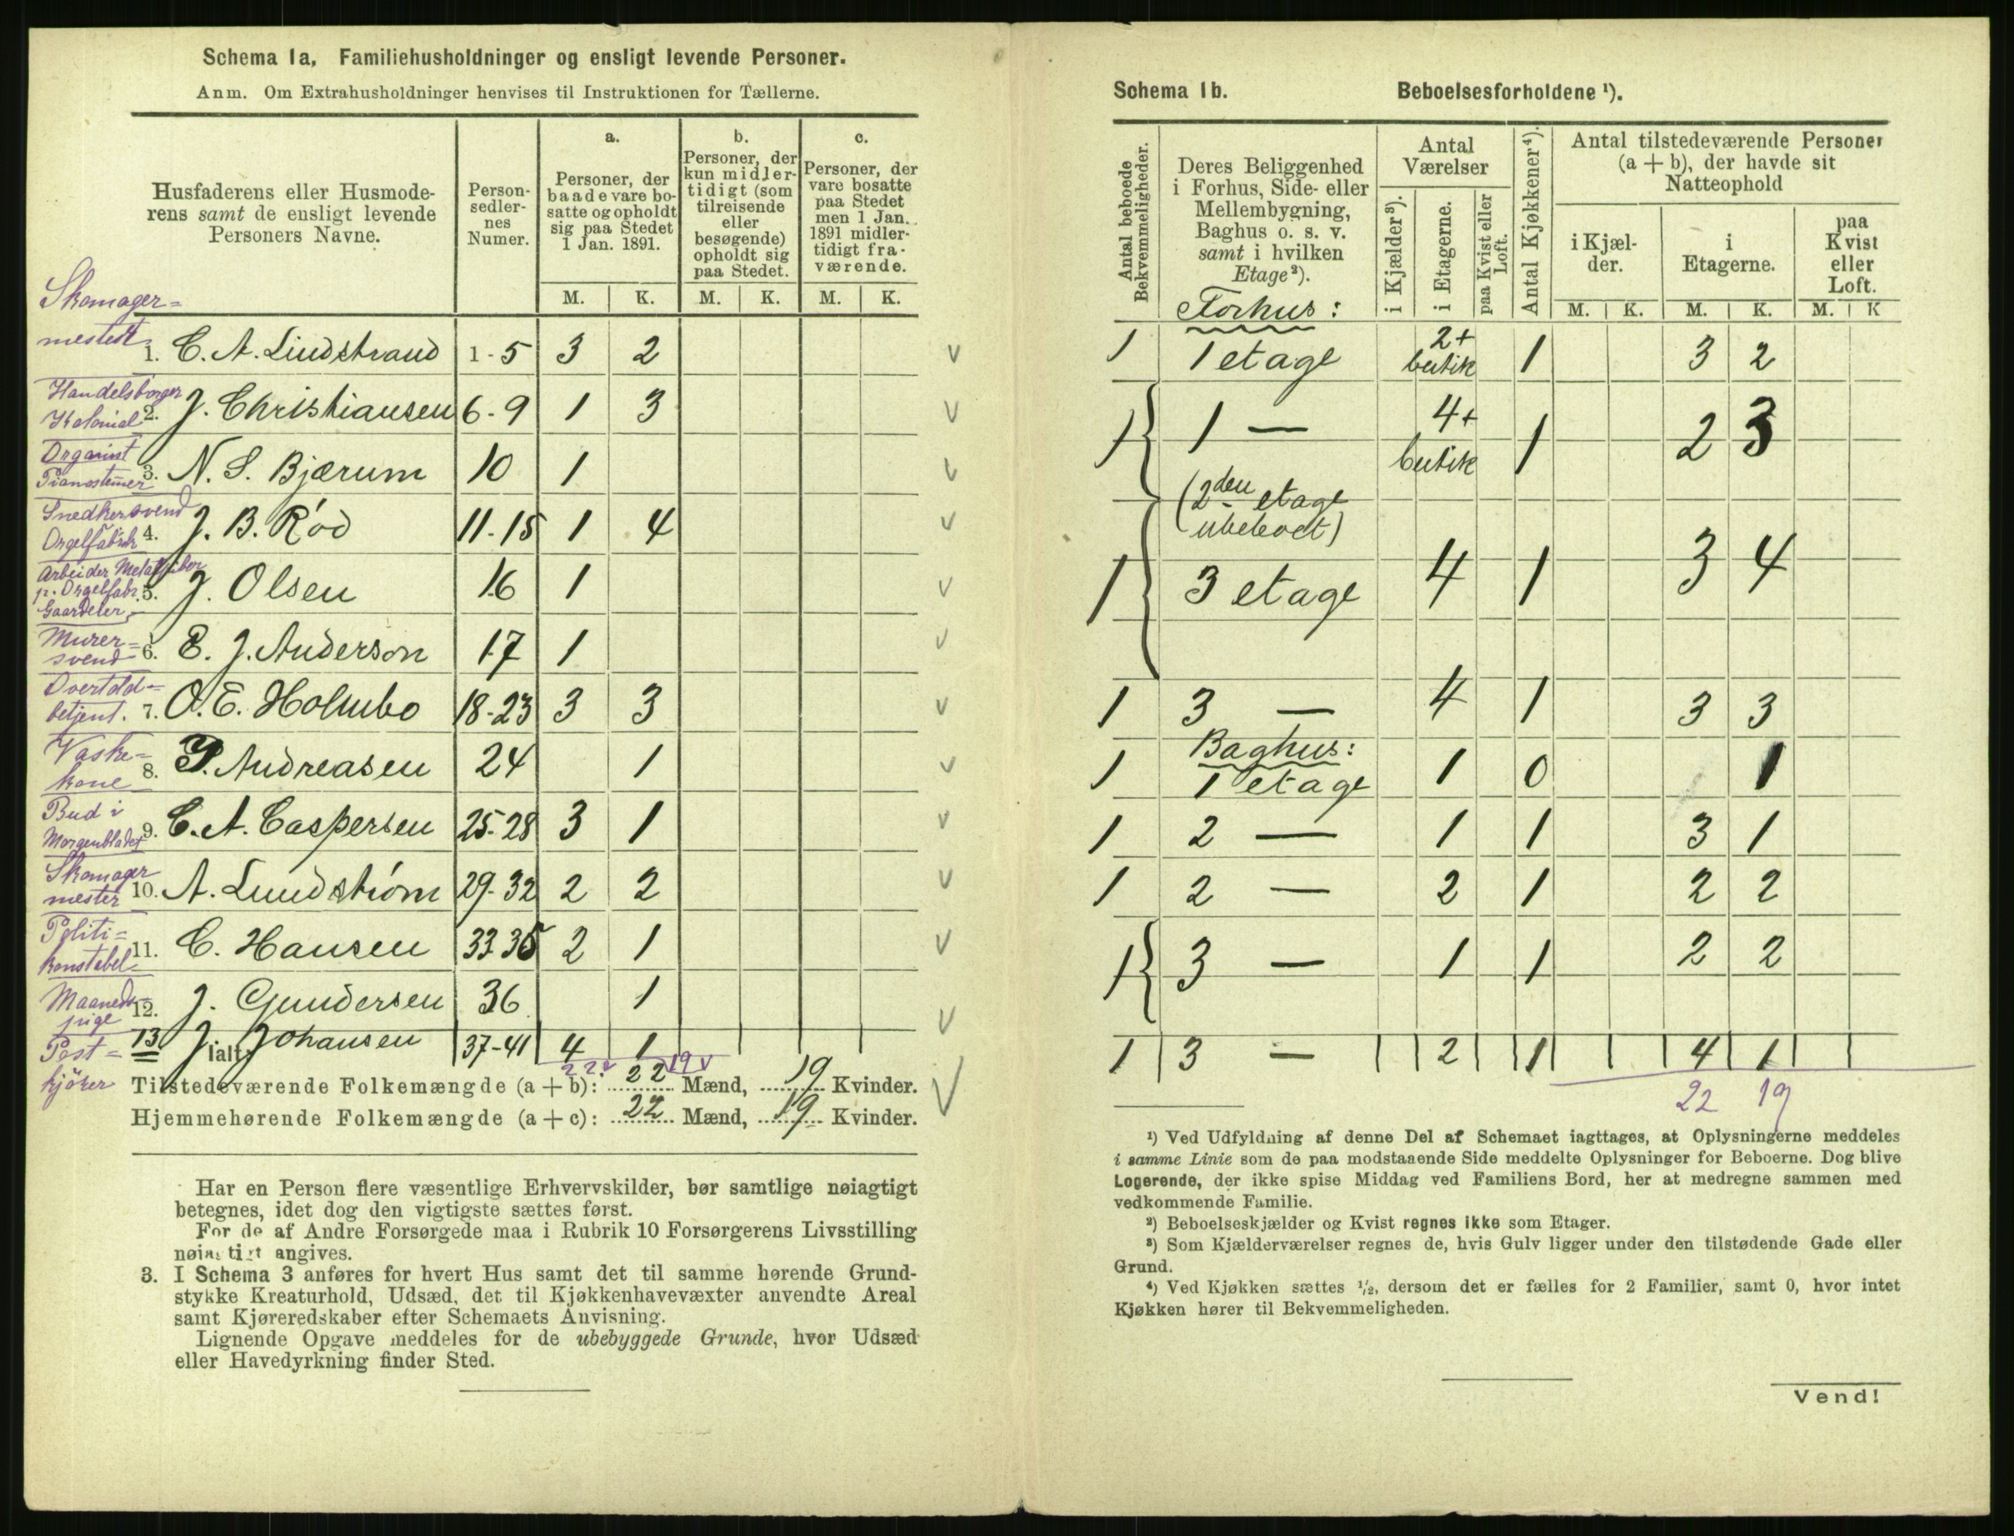 Schema 1a. Familiehusholdninger og ensligt levende Personer.
Anm. Om Extrahusholdninger henvises til Instruktionen for Tællerne.
Husfaderens eller Husmode-
rens samt de ensligt levende
Personers Navne.
Person-
sedler-
nes
Numer.
a.
Personer, der
baade vare bo-
satte og opholdt
sig paa Stedet
1 Jan. 1891.
b.
Personer, der
kun midler-
tidigt (som
tilreisende
eller
besøgende)
opholdt sig
paa Stedet.
c.
Personer, der
vare bosatte
paa Stedet
men 1 Jan.
1891 midler-
tidigt fra-
værende.
M. K. M. K. M. K.
Skomager=
mester 1. C. A. Lindstrand 1-5 3 2
Handelsborger
Kolonial 2. J. Christiansen 6-9 1 3
Organist
Pianostemmer 3. N. S. Bjærum 10 1
Snedkersvend
Orgelfabrik 4. J. B. Rød 11-15 1 4
Arbeider
p. Orgelfabr. 5. J. Olsen 16 1
Gaardeier
Murer=
svend 6. E. J. Anderson 17 1
Overtold=
betjent. 7. O. E. Holmbo 18-23 3 3
Vaske=
kone 8. P. Andreasen 24 1
Bud i
Morgenbladet 9. C. A. Caspersen 25-28 3 1
Skomager
mester 10. A. Lundstrøm 29-32 2 2
Politi=
konstabel 11. C. Hansen 33-35 2 1
Maaneds=
pige 12. J. Gundersen 36 1
Post=
kjörer 13 J. Johansen 37-41 4 1
Ialt
22 19
Tilstedeværende Folkemængde (a + b): 22 Mænd, 19 Kvinder.
Hjemmehørende Folkemængde (a + c): 22 Mænd, 19 Kvinder.
Har en Person flere væsentlige Erhvervskilder, bør samtlige nøiagtigt
betegnes, idet dog den vigtigste sættes først.
For de af Andre Forsørgede maa i Rubrik 10 Forsørgerens Livsstilling
nøiagtigt angives.
3. I Schema 3 anføres for hvert Hus samt det til samme hørende Grund-
stykke Kreaturhold, Udsæd, det til Kjøkkenhavevæxter anvendte Areal
samt Kjøreredskaber efter Schemaets Anvisning.
Lignende Opgave meddeles for de ubebyggede Grunde, hvor Udsæd
eller Havedyrkning finder Sted.
Schema 1b. Beboelsesforholdene ¹).
Antal beboede
Bekvemmeligheder.
Deres Beliggenhed
i Forhus, Side- eller
Mellembygning,
Baghus o. s. v.
samt i hvilken
Etage²).
Antal
Værelser
i Kjælder³).
i Etagerne.
paa Kvist eller
Loft.
Antal Kjøkkener⁴).
Antal tilstedeværende Personer
(a + b), der havde sit
Natteophold
i Kjæl-
der.
i
Etagerne.
paa
Kvist
eller
Loft.
M. K. M. K. M. K
Forhus:
1 1 etage 2+ butik 1 3 2
1 1 — 4+ butik 1 2 3
(2den etage
ubeboet)
1 3 etage 4 1 3 4
1 3 — 4 1 3 3
Baghus:
1 1 etage 1 0 1
1 2 — 1 1 3 1
1 2 — 2 1 2 2
1 3 — 1 1 2 2
1 3 — 2 1 4 1
22 19
¹) Ved Udfyldning af denne Del af Schemaet iagttages, at Oplysningerne meddeles
i samme Linie som de paa modstaaende Side meddelte Oplysninger for Beboerne. Dog blive
Logerende, der ikke spise Middag ved Familiens Bord, her at medregne sammen med
vedkommende Familie.
²) Beboelseskjælder og Kvist regnes ikke som Etager.
³) Som Kjælderværelser regnes de, hvis Gulv ligger under den tilstødende Gade eller
Grund.
⁴) Ved Kjøkken sættes ½, dersom det er fælles for 2 Familier, samt 0, hvor intet
Kjøkken hører til Bekvemmeligheden.
Vend!